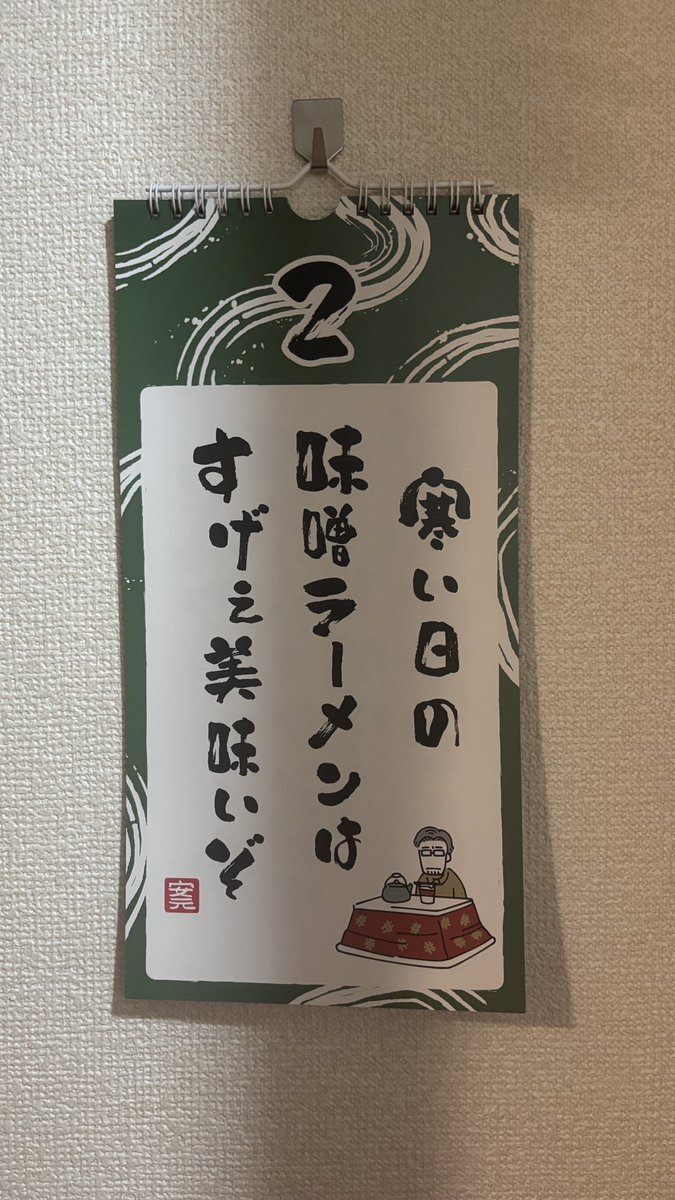 2
寒い日の
味噌ラーメンは
すげぇ美味いぞ
安元